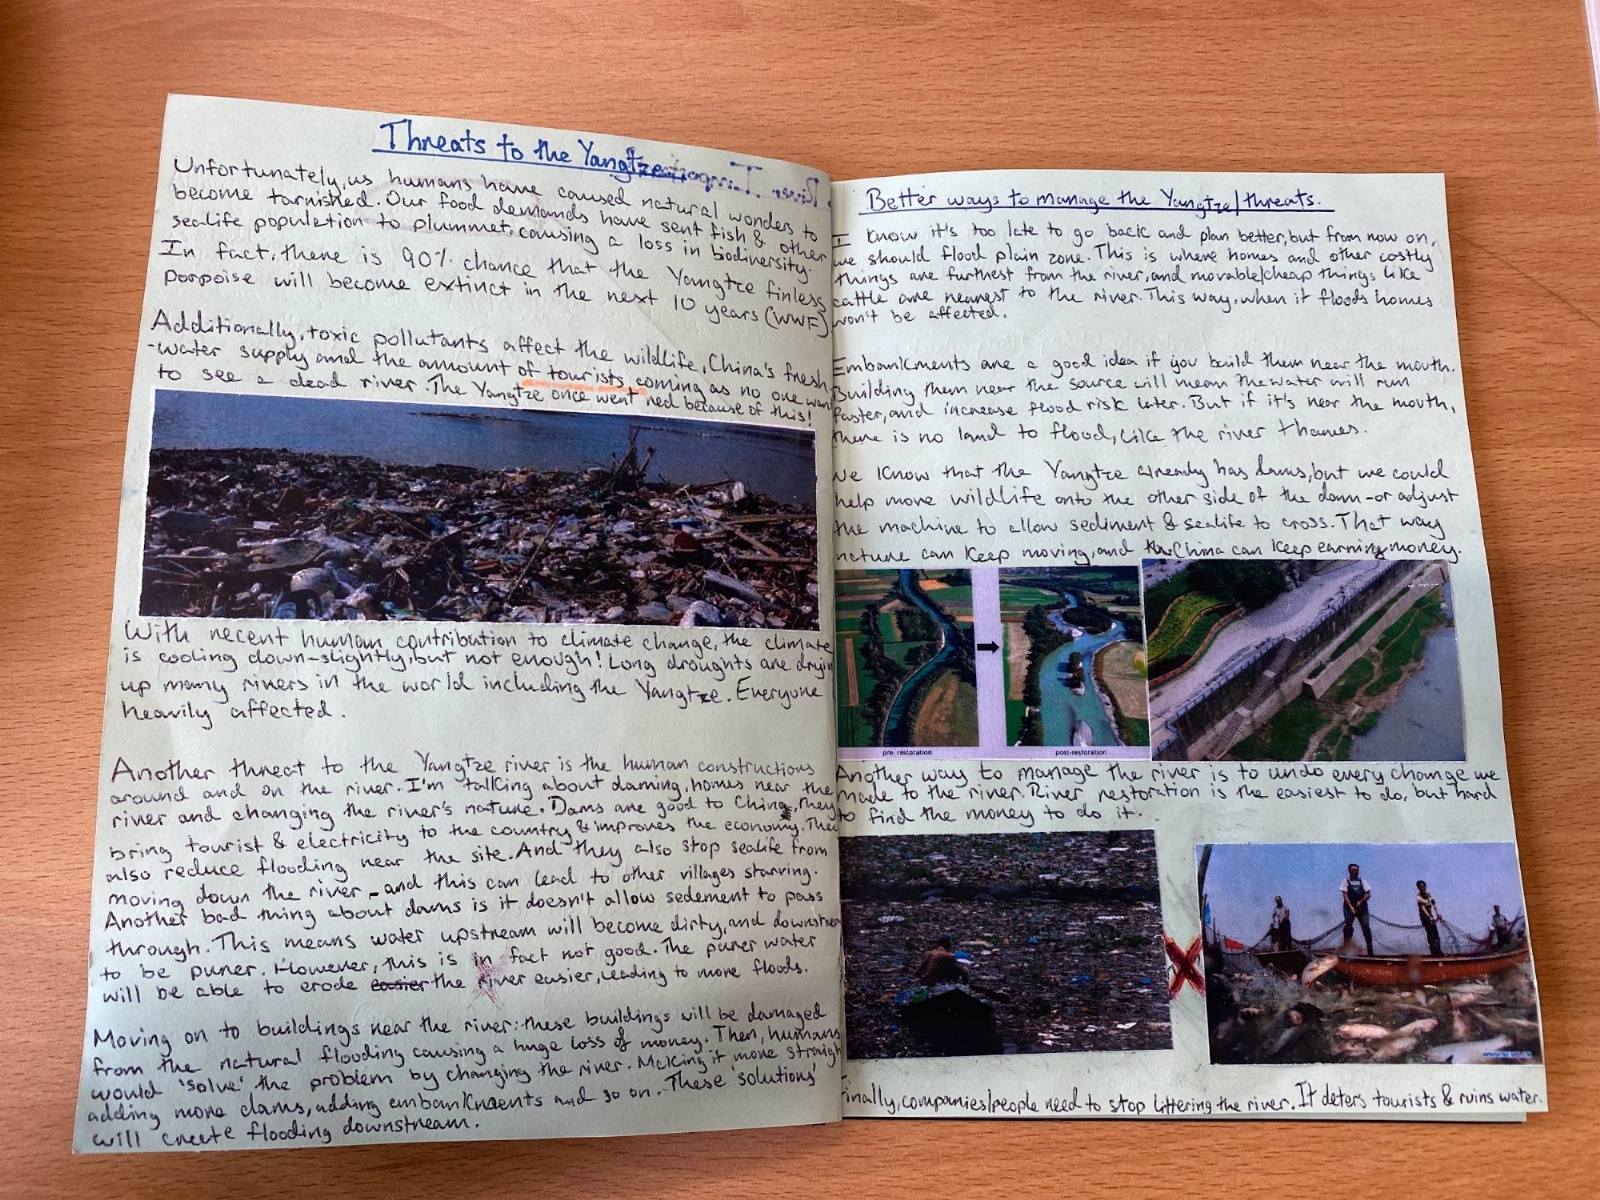 Threats to the Yangtze
Unfortunately, us humans have caused natural wonders to
become tarnished. Our food demands have sent fish & other
sealife population to plummet, causing a loss in biodiversity.
In fact, there is 90% chance that the Yangtze finless
porpoise will become extinct in the next 10 years (WWF)
Additionally, toxic pollutants affect the wildlife, China's fresh
-water supply and the amount of tourists coming as no one want
to see a dead river. The Yangtze once went red because of this!
With recent human contribution to climate change, the climate
is cooling down-slightly, but not enough! Long droughts are dryin
up many rivers in the world including the Yangtze. Everyone
heavily affected.
Another threat to the Yangtze river is the human constructions
around and on the river. I'm talking about daming, homes near the
river and changing the river's nature. Dams are good to China, they
bring tourist & electricity to the country & improves the economy. They
also reduce flooding near the site. And they also stop sealife from
moving down the river - and this can lead to other villages starving.
Another bad thing about dams is it doesn't allow sedement to pass
through. This means water upstream will become dirty, and downstream
to be purer. However, this is in fact not good. The purer water
will be able to erode easier the river easier, leading to more floods.
Moving on to buildings near the river: these buildings will be damaged
from the natural flooding causing a huge loss of money. Then, humans
would 'solve' the problem by changing the river. Making it more straigh
adding more dams, adding embankments and so on. These 'solutions'
will create flooding downstream.
Better ways to manage the Yangtze/threats.
I know it's too late to go back and plan better, but from now on,
we should flood plain zone. This is where homes and other costly
things are furthest from the river, and movable/cheap things like
cattle are nearest to the river. This way, when it floods homes
won't be affected.
Embankments are a good idea if you build them near the mouth.
Building them near the source will mean the water will run
faster, and increase flood risk later. But if it's near the mouth,
there is no land to flood, like the river thames.
We know that the Yangtze already has dams, but we could
help move wildlife onto the other side of the dam - or adjust
the machine to allow sediment & sealife to cross. That way
nature can keep moving, and China can keep earning money.
pre restoration
post-restoration
Another way to manage the river is to undo every change we
made to the river. River restoration is the easiest to do, but hard
to find the money to do it.
Finally, companies/people need to stop littering the river. It deters tourists & ruins water.